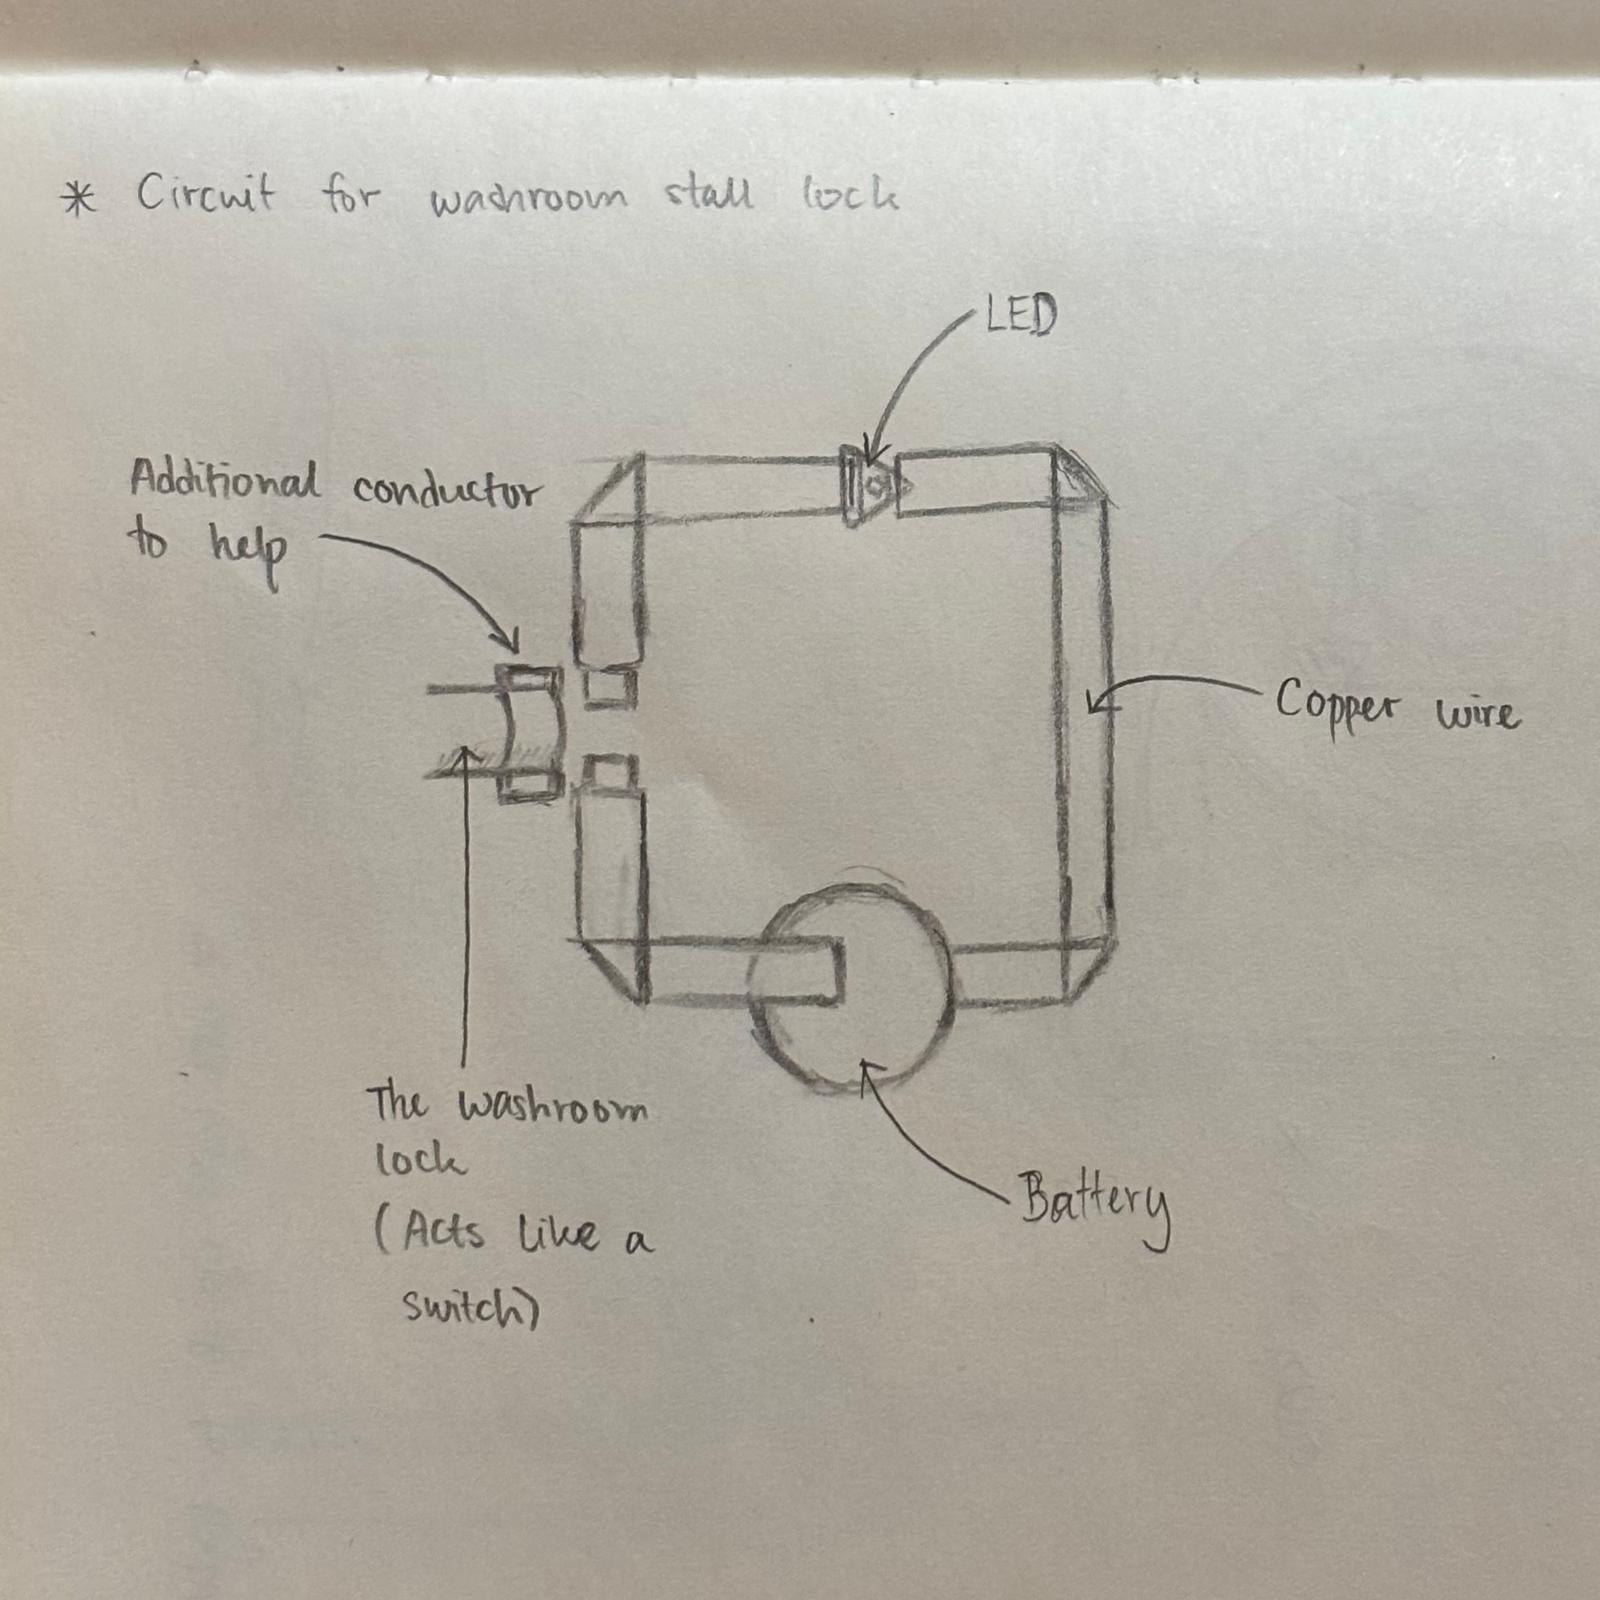 * Circuit for washroom stall lock
LED
Additional conductor
to help
Copper wire
The washroom
lock
(Acts like a
switch)
Battery